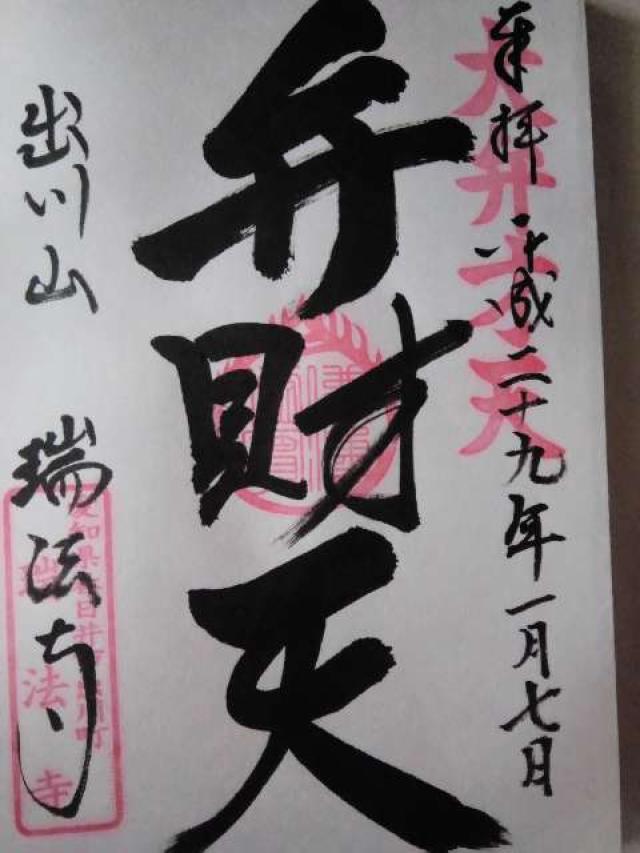 奉拝 平成二十九年一月七日
大弁才天
弁財天
出川山 瑞法寺
愛知県春日井市出川町
瑞法寺